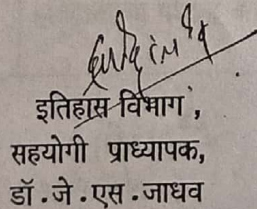 इतिहास विभाग,
सहयोगी प्राध्यापक,
डॉ.जे.एस.जाधव